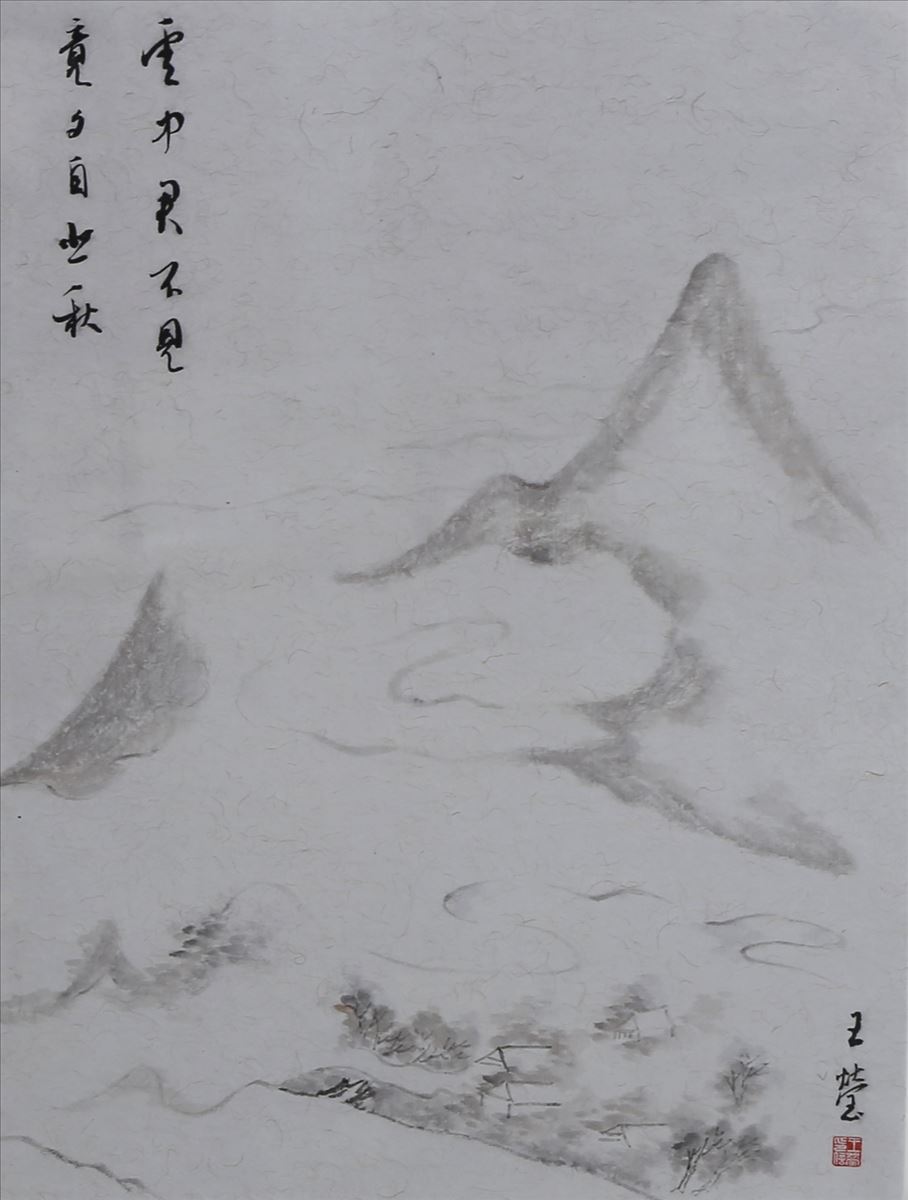 雲中君不見
竟夕自悲秋
王瑩